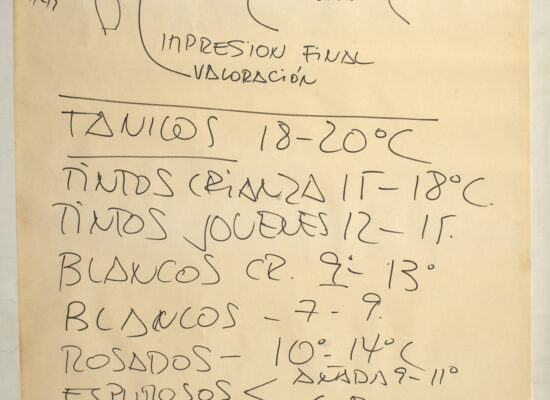 IMPRESION FINAL
VALORACIÓN
TANICOS 18-20°C
TINTOS CRIANZA 15-18°C.
TINTOS JOVENES 12-15.
BLANCOS CR. 9°- 13°
BLANCOS - 7 - 9.
ROSADOS- 10°-14°C
ESPUMOSOS < AÑADA 9-11°